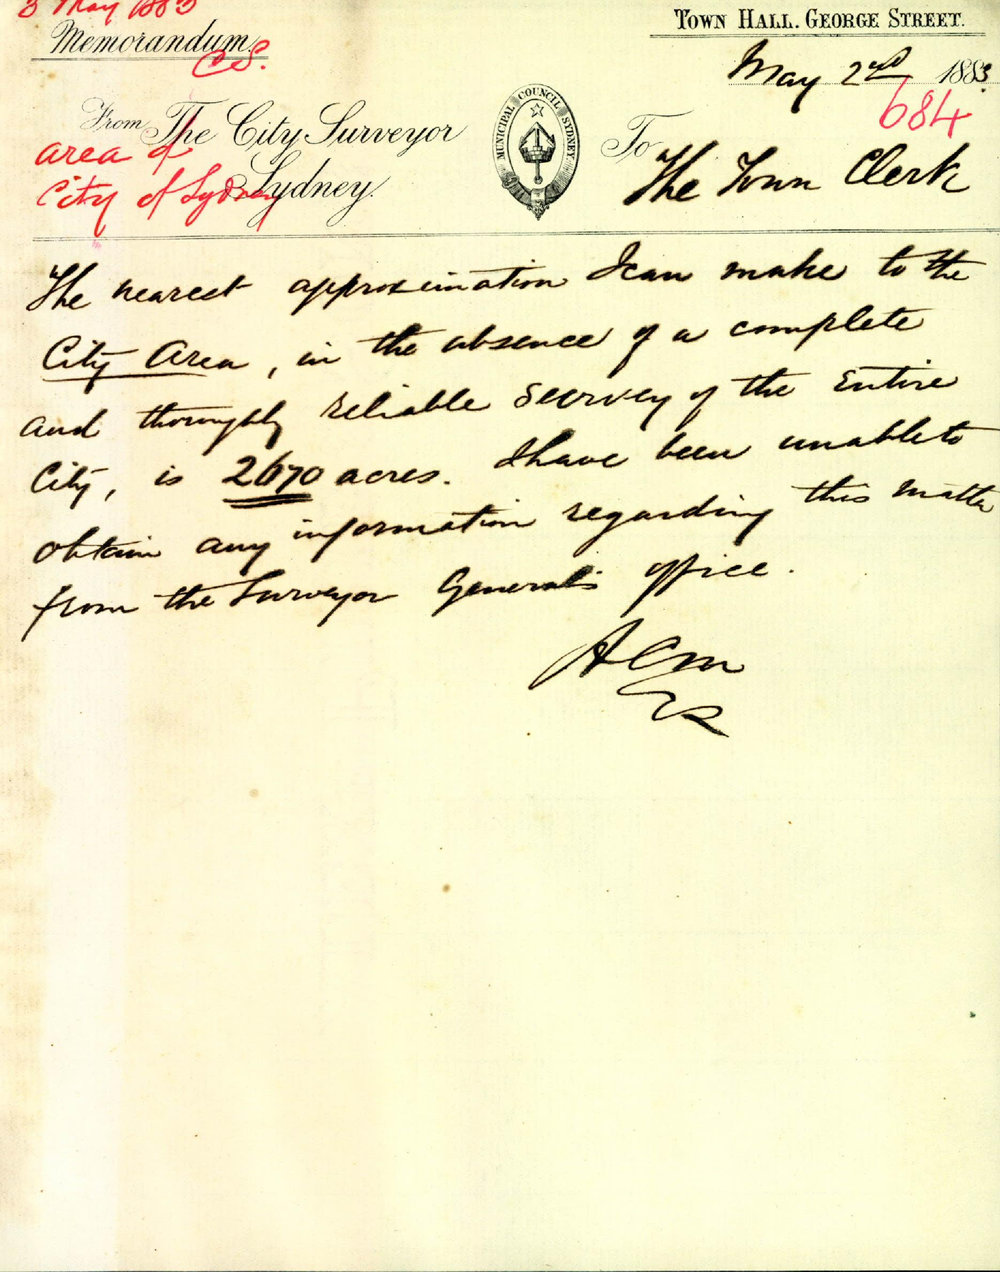 3 May 1883
Memorandum.
C.S.
TOWN HALL. GEORGE STREET.
May 2nd 1883
684
From The City Surveyor
Sydney.
area of
City of Sydney
MUNICIPAL COUNCIL SYDNEY
To
The Town Clerk
The nearest approximation I can make to the
City Area, in the absence of a complete
and thoroughly reliable survey of the entire
City, is 2670 acres. I have been unable to
obtain any information regarding this matter
from the Surveyor General's office.
ACM
CS